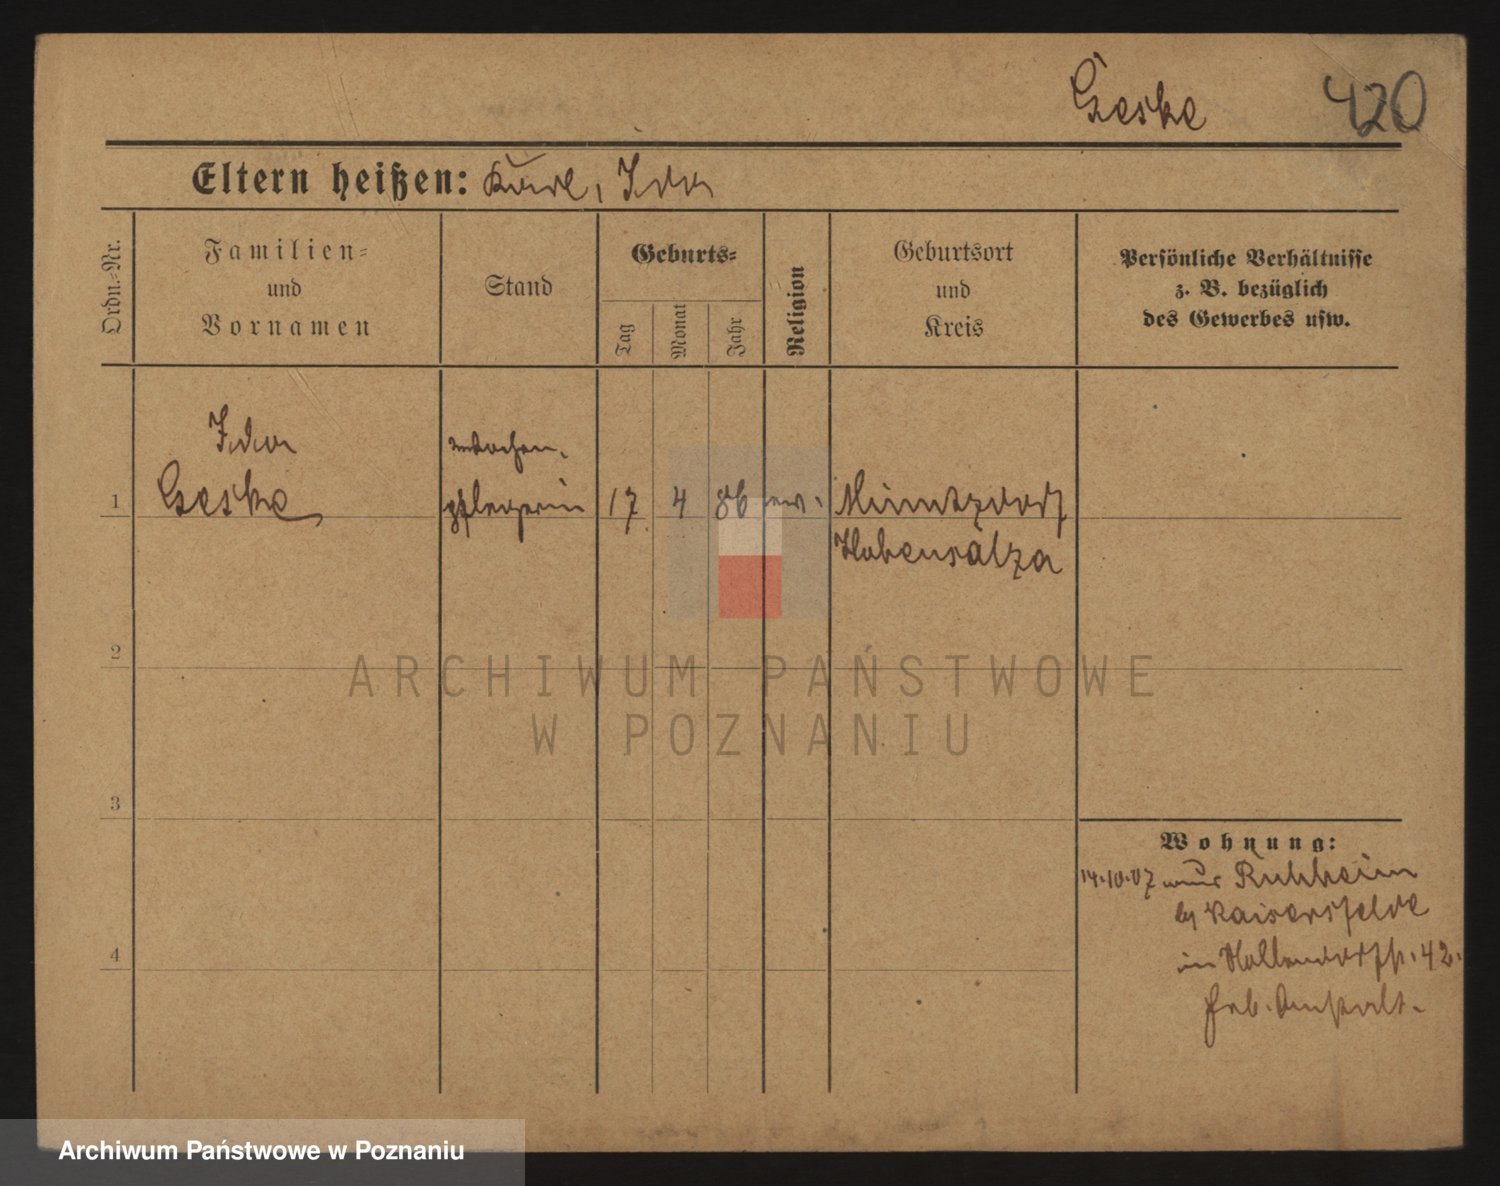 Geske 420
Eltern heißen: Karl, Ida
Ordn.-Nr.
Familien-
und
Vornamen
Stand
Geburts-
Tag
Monat
Jahr
Religion
Geburtsort
und
Kreis
Persönliche Verhältnisse
z. B. bezüglich
des Gewerbes usw.
Ida
Geske
Wochen-
pflegerin
1
17
4
86
ev.
Hohensalza
2
3
4
Wohnung:
14.10.07 Ruhheim
b/ Kaisersfelde
in Hollendorfstr. 42.
Anstalt.
ARCHIWUM PAŃSTWOWE
W POZNANIU
Archiwum Państwowe w Poznaniu